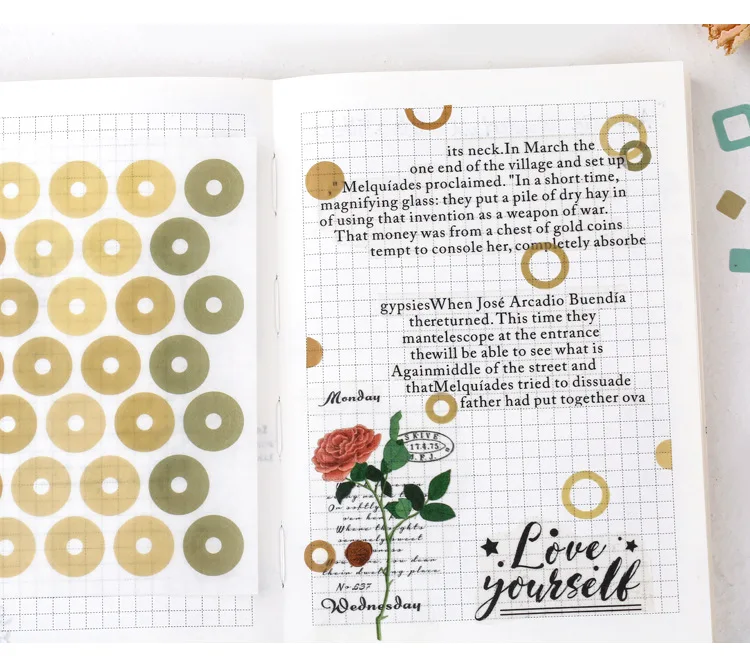 its neck.In March the
one end of the village and set up
," Melquíades proclaimed. "In a short time,
magnifying glass: they put a pile of dry hay in
of using that invention as a weapon of war.
That money was from a chest of gold coins
tempt to console her, completely absorbe
gypsiesWhen José Arcadio Buendía
thereturned. This time they
mantelescope at the entrance
thewill be able to see what is
Againmiddle of the street and
thatMelquíades tried to dissuade
father had put together ova
Monday
SKIVE
17.4.75
Where thoughts
serenely sweet
their dwelling place
No 537
Wednesday
Love
yourself